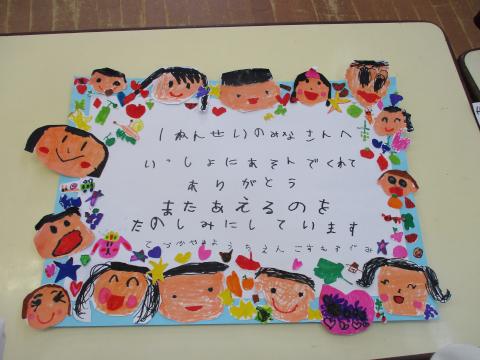 1ねんせいのみなさんへ
いっしょにあそんでくれて
ありがとう
またあえるのを
たのしみにしています
ようちえん こすもすぐみ